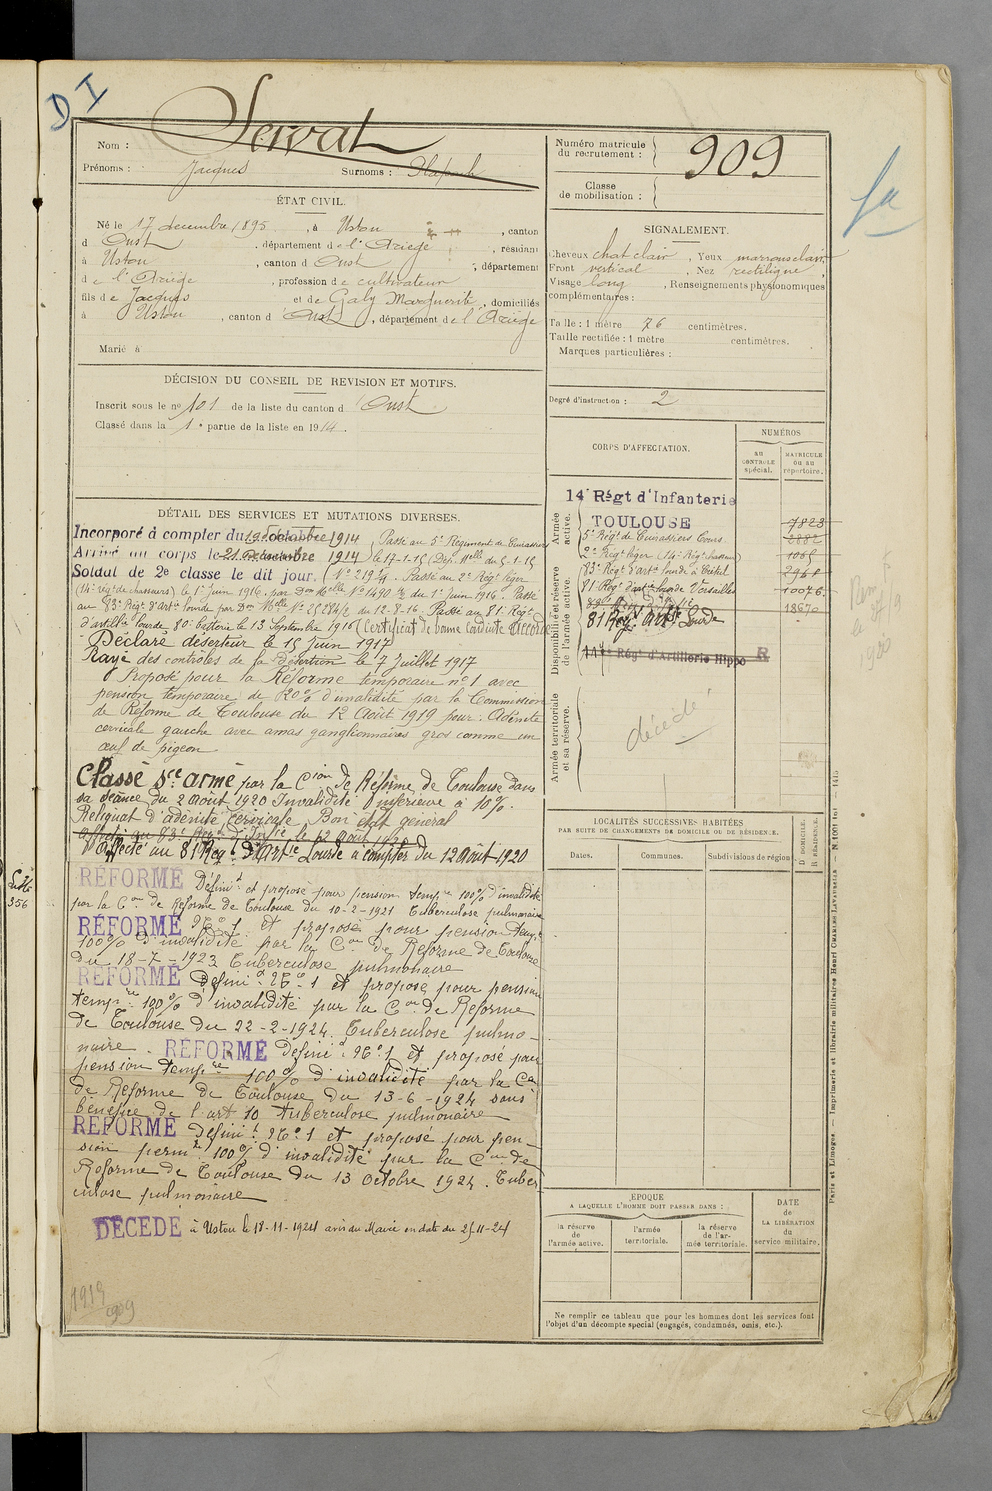 D I
Nom : Servat
Prénoms : Jacques Surnoms :
Numéro matricule
du recrutement : 909
Classe
de mobilisation :
ÉTAT CIVIL.
Né le 17 decembre 1895, à Ustou, canton
d Oust, département de l'Ariège, résidant
à Ustou, canton d Oust, département
de l'Ariège, profession de cultivateur
fils de Jacques et de Galy Marguerite, domiciliés
à Ustou, canton d Oust, département de l'Ariège
Marié à
SIGNALEMENT.
Cheveux chat clair, Yeux marrons clair
Front vertical, Nez rectiligne
Visage long, Renseignements physionomiques
complémentaires :
Taille : 1 mètre 76 centimètres.
Taille rectifiée : 1 mètre centimètres.
Marques particulières :
Degré d'instruction : 2
DÉCISION DU CONSEIL DE REVISION ET MOTIFS.
Inscrit sous le no 101 de la liste du canton d Oust
Classé dans la 1e partie de la liste en 1914.
DÉTAIL DES SERVICES ET MUTATIONS DIVERSES.
Incorporé à compter du 1914 Passé au 5e Régiment de Cuirassiers
Arrivé au corps le 1914 le 17-1-15 (Dep. Melle du 5-1-15
Soldat de 2e classe le dit jour. Passé au 2e Régt léger
(14e régt de chasseurs) le 1er juin 1916. par Don Melle No 1490 du 1er juin 1916. Passé
au 83e Régt d'Artie lourde par Don Melle No du 12-8-16. Passé au 81e Régt
d'artillie lourde 80e batterie le 13 Septembre 1916 (Certificat de bonne conduite accordé
Déclaré déserteur le 15 Juin 1917
Rayé des contrôles de la Désertion le 7 Juillet 1917
Proposé pour la Réforme temporaire no 1 avec
pension temporaire de 20% d'invalidité par la Commission
de Réforme de Toulouse du 12 Août 1919 pour : Adénite
cervicale gauche avec amas ganglionnaires gros comme un
œuf de pigeon
Classé sce armé par la Cion de Réforme de Toulouse dans
sa séance du 2 août 1920 Invalidité inférieure à 10%.
Reliquat d'adénite cervicale Bon état général
Affecté au 83e
Affecté au 81 Reg. d'Artie Lourde à compter du 12 août 1920
RÉFORMÉ Définit et proposé pour pension tempre 100% d'invalidité
par la Con de Réforme de Toulouse du 10-2-1921 Tuberculose pulmonaire
RÉFORMÉ No 1 et proposé pour pension tempre
100% d'invalidité par la Con de Reforme de Toulouse
du 18-7-1923 Tuberculose pulmonaire
RÉFORMÉ Definit No 1 et proposé pour pension
tempre 100% d'invalidité par la Con de Reforme
de Toulouse du 22-2-1924. Tuberculose pulmo-
naire. RÉFORMÉ Definit No 1 et proposé pour
pension tempre 100% d'invalidité par la Con
de Reforme de Toulouse du 13-6-1924 sans
bénéfice de l'art 10 tuberculose pulmonaire
RÉFORMÉ Definit No 1 et proposé pour pen-
sion permte 100% d'invalidité par la Con de
Reforme de Toulouse du 13 Octobre 1924. Tuber
culose pulmonaire
DÉCÉDÉ à Ustou le 18-11-1924 avis du Maire en date du 25-11-24
1919
909
CORPS D'AFFECTATION.
NUMÉROS
AU
CONTROLE
spécial.
MATRICULE
OU AU
répertoire.
Armée
active.
14e Régt d'Infanterie
TOULOUSE 7823
5e Régt de Cuirassiers Tours
2e Régt léger (14e Régt chasseurs)
83e Régt d'Artie lourde à
81e Régt d'artie lourde Versailles 10076
18670
81 Reg. Artie Lourde
Régt d'Artillerie Hippo R
Disponibilité et réserve
de l'armée active.
Armée territoriale
et sa réserve.
décédé
LOCALITÉS SUCCESSIVES HABITÉES
PAR SUITE DE CHANGEMENTS DE DOMICILE OU DE RÉSIDENCE.
Dates. Communes. Subdivisions de région. D. DOMICILE. R. RÉSIDENCE.
ÉPOQUE
A LAQUELLE L'HOMME DOIT PASSER DANS :
la réserve
de
l'armée active.
l'armée
territoriale.
la réserve
de l'ar-
mée territoriale.
DATE
de
LA LIBÉRATION
du
service militaire.
Ne remplir ce tableau que pour les hommes dont les services font
l'objet d'un décompte spécial (engagés, condamnés, omis, etc.).
Paris et Limoges. — Imprimerie et librairie militaires Henri CHARLES-LAVAUZELLE
356